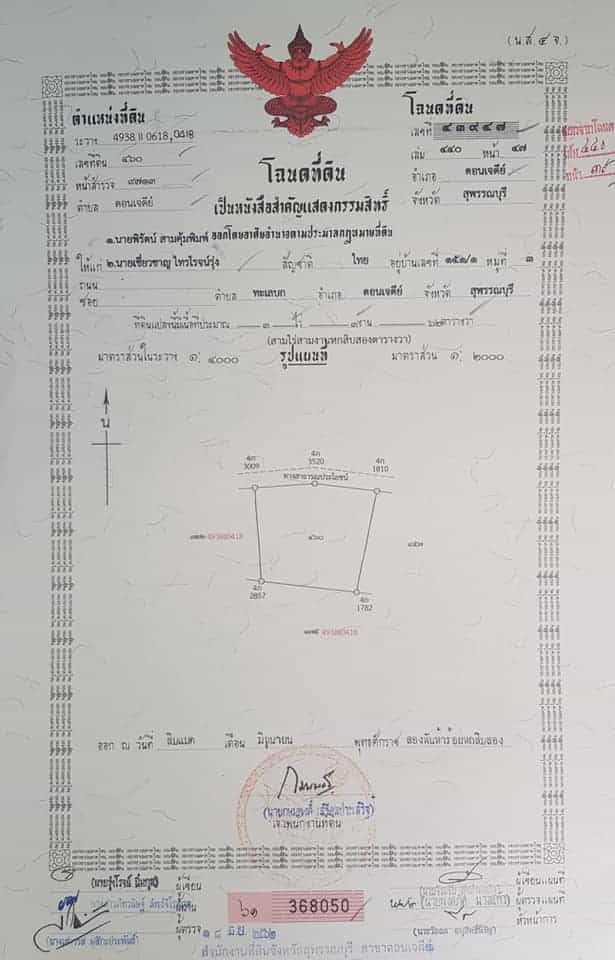 (น.ส. ๔ จ.)
ตำแหน่งที่ดิน
ระวาง 4938 II 0618, 0418
เลขที่ดิน ๔๖๐
หน้าสำรวจ ๙๗๑๓
ตำบล ดอนเจดีย์
โฉนดที่ดิน
เลขที่ ๔๓๙๔๗
เล่ม ๔๔๐ หน้า ๔๗
อำเภอ ดอนเจดีย์
จังหวัด สุพรรณบุรี
โฉนดที่ดิน
เป็นหนังสือสำคัญแสดงกรรมสิทธิ์
ออกโดยอาศัยอำนาจตามประมวลกฎหมายที่ดิน
๑.นายพิรัตน์ สามคุ้มพิมพ์
ให้แก่ ๒.นายเชี่ยวชาญ ไทรโรจน์รุ่ง สัญชาติ ไทย อยู่บ้านเลขที่ ๑๕๑/๑ หมู่ที่ ๓
ถนน
ซอย ตำบล ทะเลบก อำเภอ ดอนเจดีย์ จังหวัด สุพรรณบุรี
ที่ดินแปลงนี้มีเนื้อที่ประมาณ ๓ ไร่ ๓ งาน ๖๒ ตารางวา
(สามไร่สามงานหกสิบสองตารางวา)
มาตราส่วนในระวาง ๑: ๔๐๐๐ รูปแผนที่ มาตราส่วน ๑: ๒๐๐๐
น
4ก 3009
4ก 3520
4ก 1810
ทางสาธารณประโยชน์
493880418
๔๖๐
4ก 2857
4ก 1782
493880418
ออก ณ วันที่ สิบแปด เดือน มิถุนายน พุทธศักราช สองพันห้าร้อยหกสิบสอง
เจ้าพนักงานที่ดิน
ผู้เขียน
ผู้ตรวจ
ผู้เขียนแผนที่
ผู้ตรวจแผนที่
หัวหน้าการ
๖๑ 368050
๑๘ มิ.ย. ๒๕๖๒
สำนักงานที่ดินจังหวัดสุพรรณบุรี สาขาดอนเจดีย์